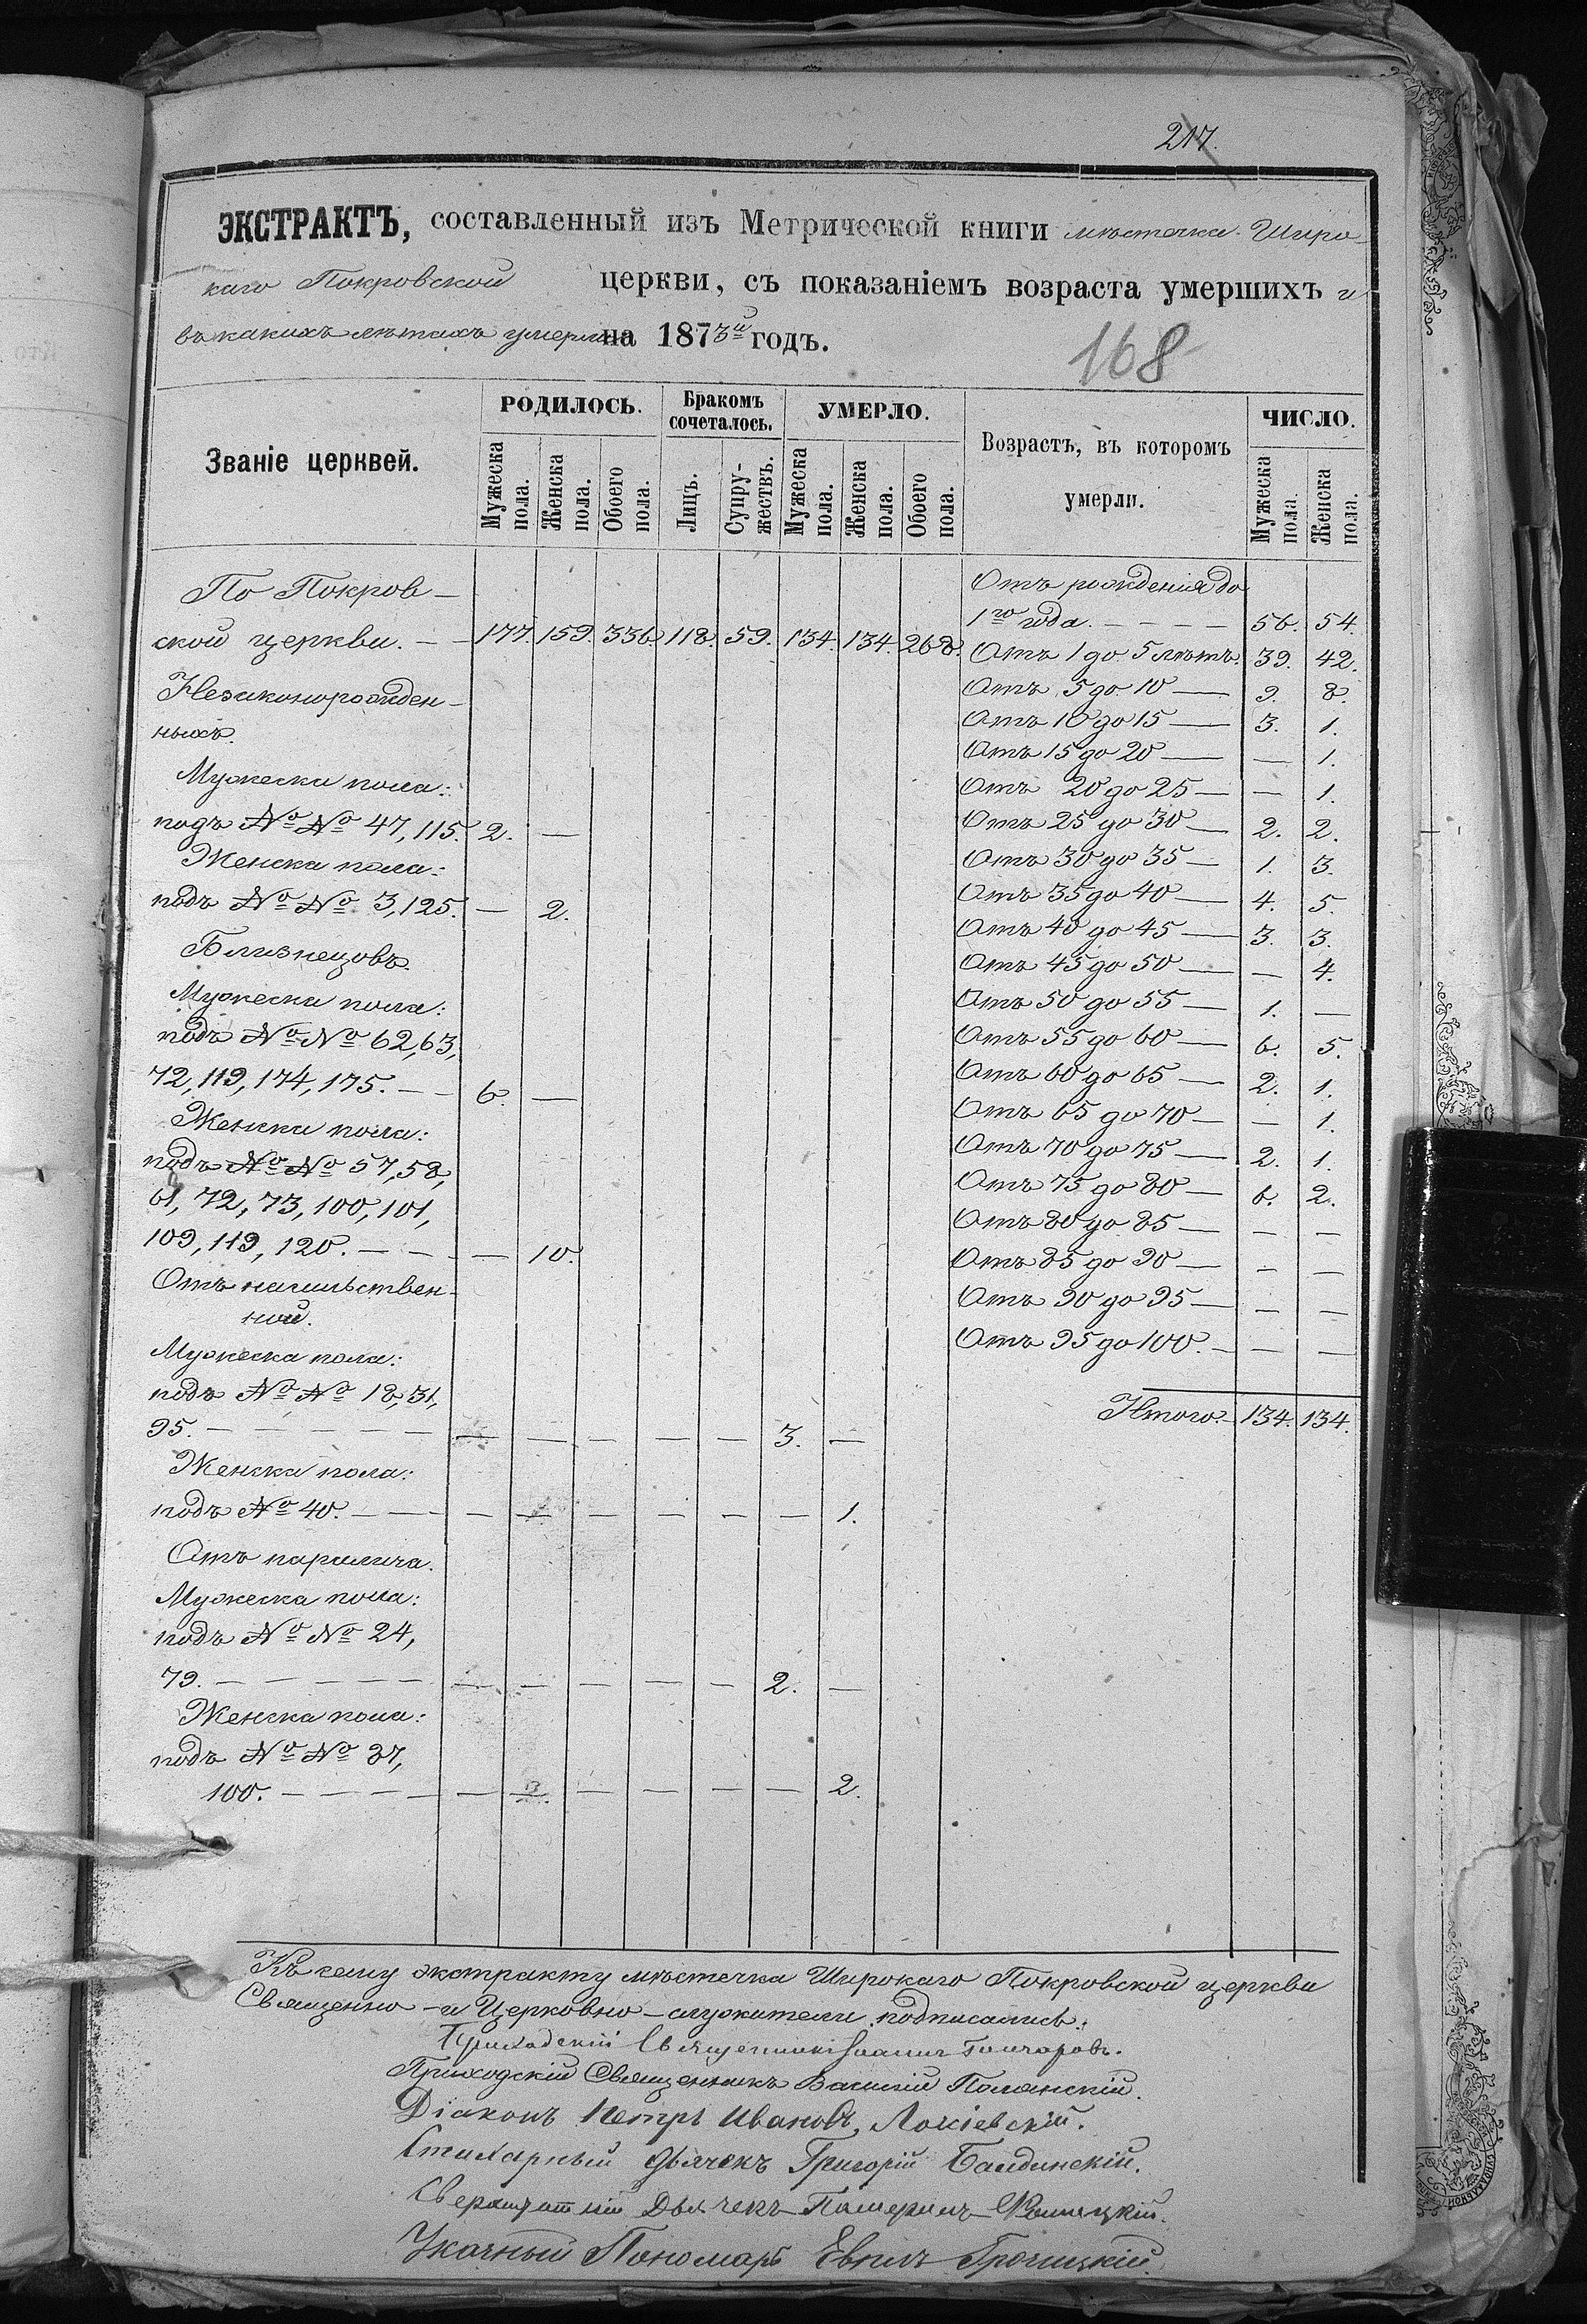 217.
ЭКСТРАКТЪ, составленный изъ Метрической книги мѣстечка Широ-
каго Покровской церкви, съ показаніемъ возраста умершихъ и
въ какихъ лѣтахъ умерли на 1873й годъ.
168
Званіе церквей.
РОДИЛОСЬ.
Мужеска пола.
Женска пола.
Обоего пола.
Бракомъ сочеталось.
Лицъ.
Супружествъ.
УМЕРЛО.
Мужеска пола.
Женска пола.
Обоего пола.
Возрастъ, въ которомъ
умерли.
ЧИСЛО.
Мужеска пола.
Женска пола.
По Покров-
ской церкви. — 177. 159. 336. 118. 59. 134. 134. 268.
Незаконорожден-
ныхъ.
Мужеска пола:
подъ №№ 47, 115. 2. —
Женска пола:
подъ №№ 3, 125. — 2.
Близнецовъ.
Мужеска пола:
подъ №№ 62, 63,
72, 119, 174, 175. — 6. —
Женска пола:
подъ №№ 57, 58,
61, 72, 73, 100, 101,
109, 119, 120. — — — 10.
Отъ насильствен-
ной.
Мужеска пола:
подъ №№ 18, 31,
95. — — — — — — — — — — 3. —
Женска пола:
подъ № 40. — — — — — — — — 1.
Отъ паралича.
Мужеска пола:
подъ №№ 24,
79. — — — — — — — — — — 2. —
Женска пола:
подъ №№ 37,
100. — — — — — — — — — — 2.
Отъ рожденія до
1го года. — — — — 56. 54.
Отъ 1 до 5 лѣтъ. 39. 42.
Отъ 5 до 10 — 9. 8.
Отъ 10 до 15 — 3. 1.
Отъ 15 до 20 — — 1.
Отъ 20 до 25 — — 1.
Отъ 25 до 30 — 2. 2.
Отъ 30 до 35 — 1. 3.
Отъ 35 до 40 — 4. 5.
Отъ 40 до 45 — 3. 3.
Отъ 45 до 50 — — 4.
Отъ 50 до 55 — 1. —
Отъ 55 до 60 — 6. 5.
Отъ 60 до 65 — 2. 1.
Отъ 65 до 70 — — 1.
Отъ 70 до 75 — 2. 1.
Отъ 75 до 80 — 6. 2.
Отъ 80 до 85 — — —
Отъ 85 до 90 — — —
Отъ 90 до 95 — — —
Отъ 95 до 100. — — —
Итого. — 134. 134.
Къ сему экстракту мѣстечка Широкаго Покровской церкви
Священно-и Церковно-служители подписались:
Приходскій Священникъ Іоаннъ Гончаровъ.
Приходскій Священникъ Василій Полянскій.
Діаконъ Петръ Ивановъ,
Стихарный дьячекъ Григорій
Сверхштатній Дьячекъ
Указный Пономарь